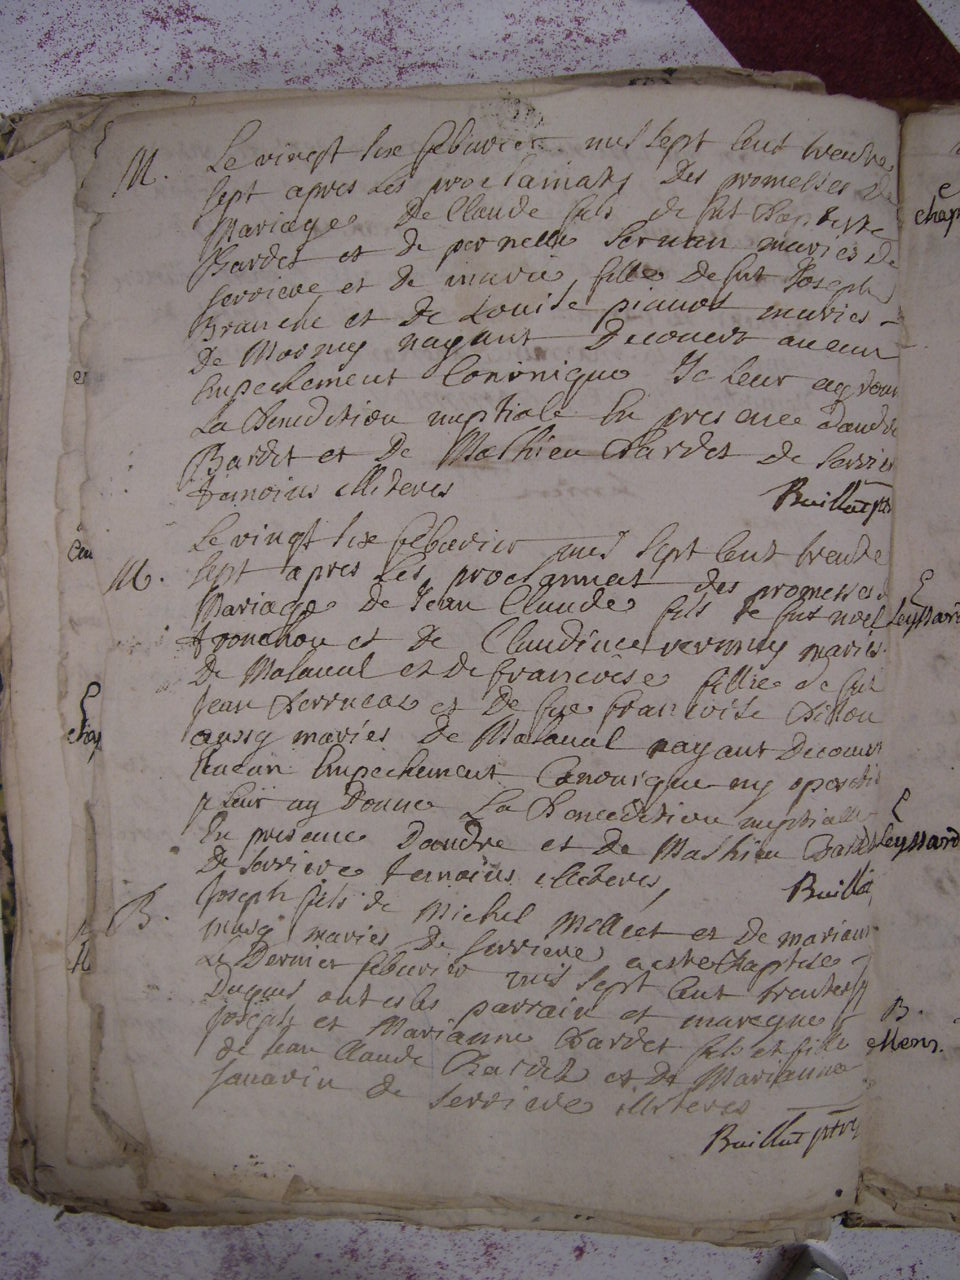 M. Le vingt sixe febvrier mil sept cent trente
sept apres les proclamats des promesses de
Mariage de Claude fils de fut Baptiste
Bardet et de pernette mariés de
serriere et de marie fille de fut Joseph
Branche et de Louise mariés
De Mornay nayant Decouvert aucun
Empechement Canonique Je leur ay donné
La Benediction nuptiale En presence dandré
Bardet et De Mathieu Bardet de serrier
temoins illiteres
Buillat ptre
Le vingt sixe febvrier mil sept cent trente
M. sept apres Les proclamat des promesses de
Mariage de Jean Claude fils de fut noel
tronchon et de Claudine vernay mariés
De Malaval et de francoise fillie de fut
Jean et De fue francoise
aussy mariés de Malaval nayant Decouvert
Aucun Empechement Canonique ny
je leur ay Donné La Benediction nuptialle
En presence Dandre et de Mathieu Bardet
De serriere temoins illiteres,
Buillat
B. Joseph fils de Michel Molliet et de marianne
mariés De serriere a esté Baptisé
Le Dernier febvrier mil sept cent trentesept
Duquel ont estés parrain et mareyne
Joseph et Marianne Bardet fils et fille
de Jean Claude Bardet et De Marianne
savarin de serriere illiteres
Buillat ptre
Leyssard
Leyssard
B.